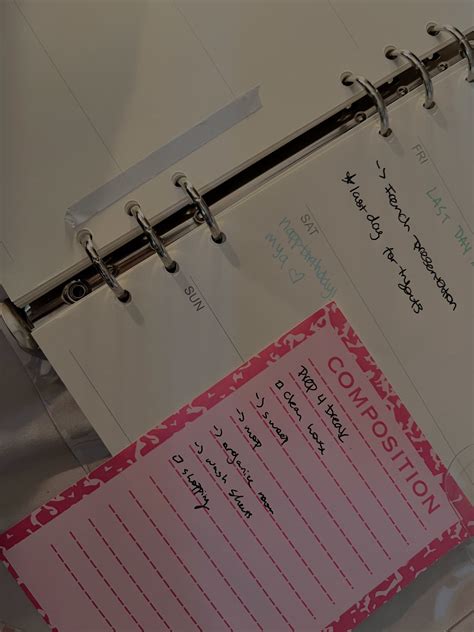 FRI
LAST DAY
-> French presentation
*last day for tryouts
SAT
happy birthday
mya ♡
SUN
COMPOSITION
PREP 4 break
□ clean
-> sweep
-> mop
-> organize room
-> wash sheets
□ shopping